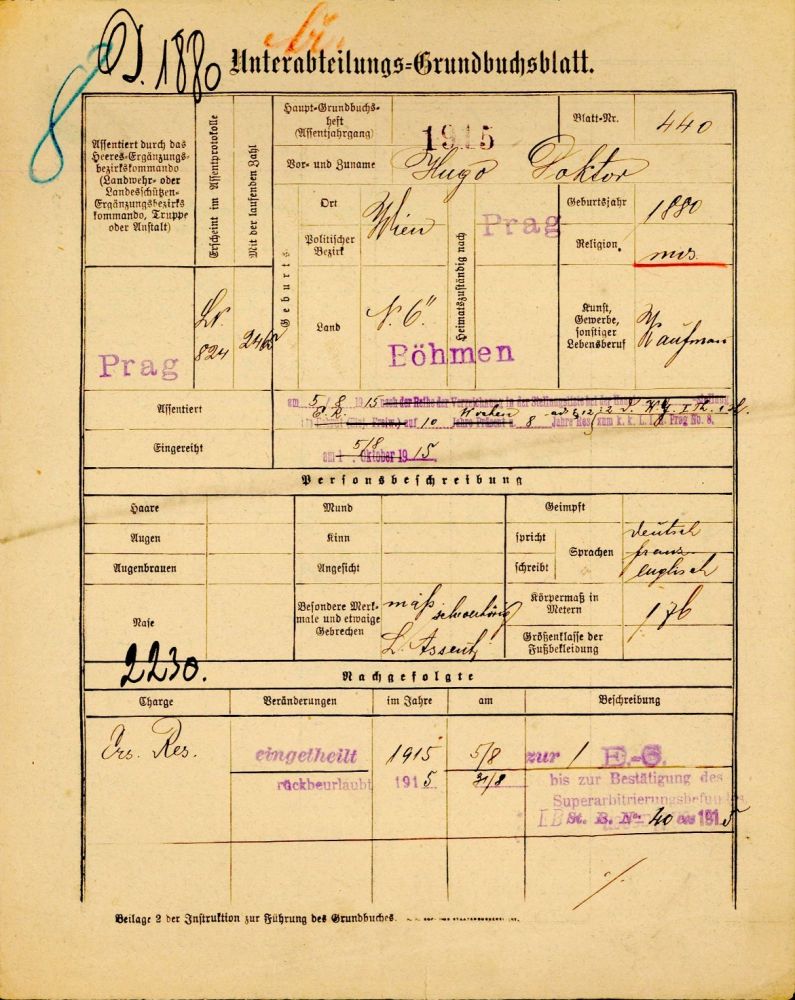 D. 1880
Unterabteilungs=Grundbuchsblatt.
Assentiert durch das
Heeres-Ergänzungs-
bezirkskommando
(Landwehr- oder
Landesschützen-
Ergänzungsbezirks
kommando, Truppe
oder Anstalt)
Erscheint im Assentprotokolle
Mit der laufenden Zahl
Haupt-Grundbuchs-
heft
(Assentjahrgang)
1915
Blatt-Nr.
440
Vor- und Zuname
Hugo Doktor
Geburts
Ort
Wien
Politischer
Bezirk
Land
N. Ö.
Heimatszuständig nach
Prag
Böhmen
Geburtsjahr
1880
Religion.
mos.
Kunst,
Gewerbe,
sonstiger
Lebensberuf
Kaufman
Prag
824
Assentiert
am 5/8 1915 nach der Reihe der Verzeichnung in der Stellungsliste
auf 10 Wochen Jahre Präsenz u. 8 Jahre Res zum k. k. L. I. R. Prag No. 8.
Eingereiht
5/8
am 1. Oktober 1915.
Personsbeschreibung
Haare
Augen
Augenbrauen
Nase
Mund
Kinn
Angesicht
Besondere Merk-
male und etwaige
Gebrechen
mäß
schwerhörig
L. Assent
Geimpft
spricht
schreibt
Sprachen
deutsch
franz
englisch
Körpermaß in
Metern
1 76
Größenklasse der
Fußbekleidung
2230.
Nachgefolgte
Charge
Veränderungen
im Jahre
am
Beschreibung
Ers. Res.
eingetheilt
1915
5/8
zur 1 E.-G.
rückbeurlaubt
1915
31/8
bis zur Bestätigung des
Superarbitrierungsbefundes
St. B. No. 40 ex 1915
Beilage 2 der Instruktion zur Führung des Grundbuches.